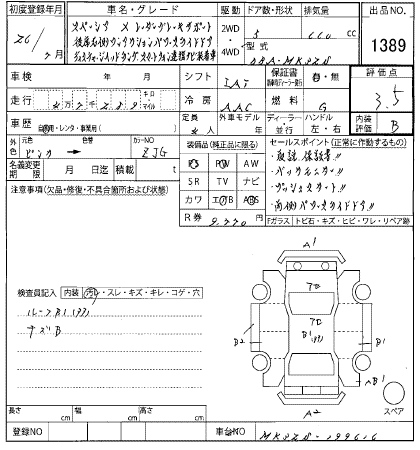 初度登録年月 車名・グレード 駆動 ドア数・形状 排気量 出品NO.
26/ 7月 スペーシア X レーダーブレーキサポート 2WD 5 660 cc 1389
後席右側ワンアクションパワースライドドア 4WD 型式
DBA-MK32S
車検 年 月 シフト IAT 保証書 有・無 評価点
走行 キロ マイル 冷房 AAC 燃料 G 3.5
車歴 自家用・レンタ・事業用( ) 定員 4人 外車モデル 年 ディーラー・並行 ハンドル 左・右 内装評価 B
外色 元色 ピンク 色替 カラーNO ZJG
装備品(純正品に限る) セールスポイント(正常に動作するもの)
名義変更期限 月 日迄 積載 t
PS PW AW
SR TV ナビ
カワ エアB ABS
R券 9,770円
・取説、保証書〃
・バックモニター〃
・プッシュスタート〃
・両側パワースライドドア〃
Fガラス トビ石・キズ・ヒビ・ワレ・リペア跡
注意事項(欠品・修復・不具合箇所および状態)
検査員記入 内装 汚レ・スレ・キズ・キレ・コゲ・穴
ルーフB1
キズB
A1
B2 B1 B1
AB1
A2
スペア
長さ cm 幅 cm 高さ cm
登録NO 車台No. MK32S-199616